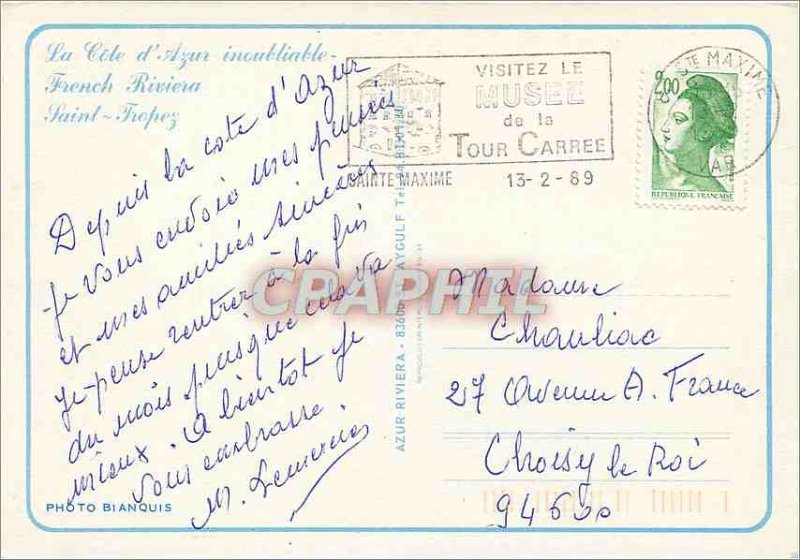 La Côte d'Azur inoubliable
French Riviera
Saint-Tropez
VISITEZ LE
MUSEE
de la
TOUR CARREE
SAINTE MAXIME 13-2-89
STE MAXIME
VAR
2,00
REPUBLIQUE FRANÇAISE
Depuis la cote d'Azur
Je vous envoie mes pensées
et mes amitiés sincères
Je pense rentrer à la fin
du mois puisque cela va
mieux. A bientot je
vous embrasse.
PHOTO BIANQUIS
AZUR RIVIERA - 83600 ST AYGULF Tel.
CPARPHIL
Madame
Chauliac
27 Avenue A. France
Choisy le Roi
94600